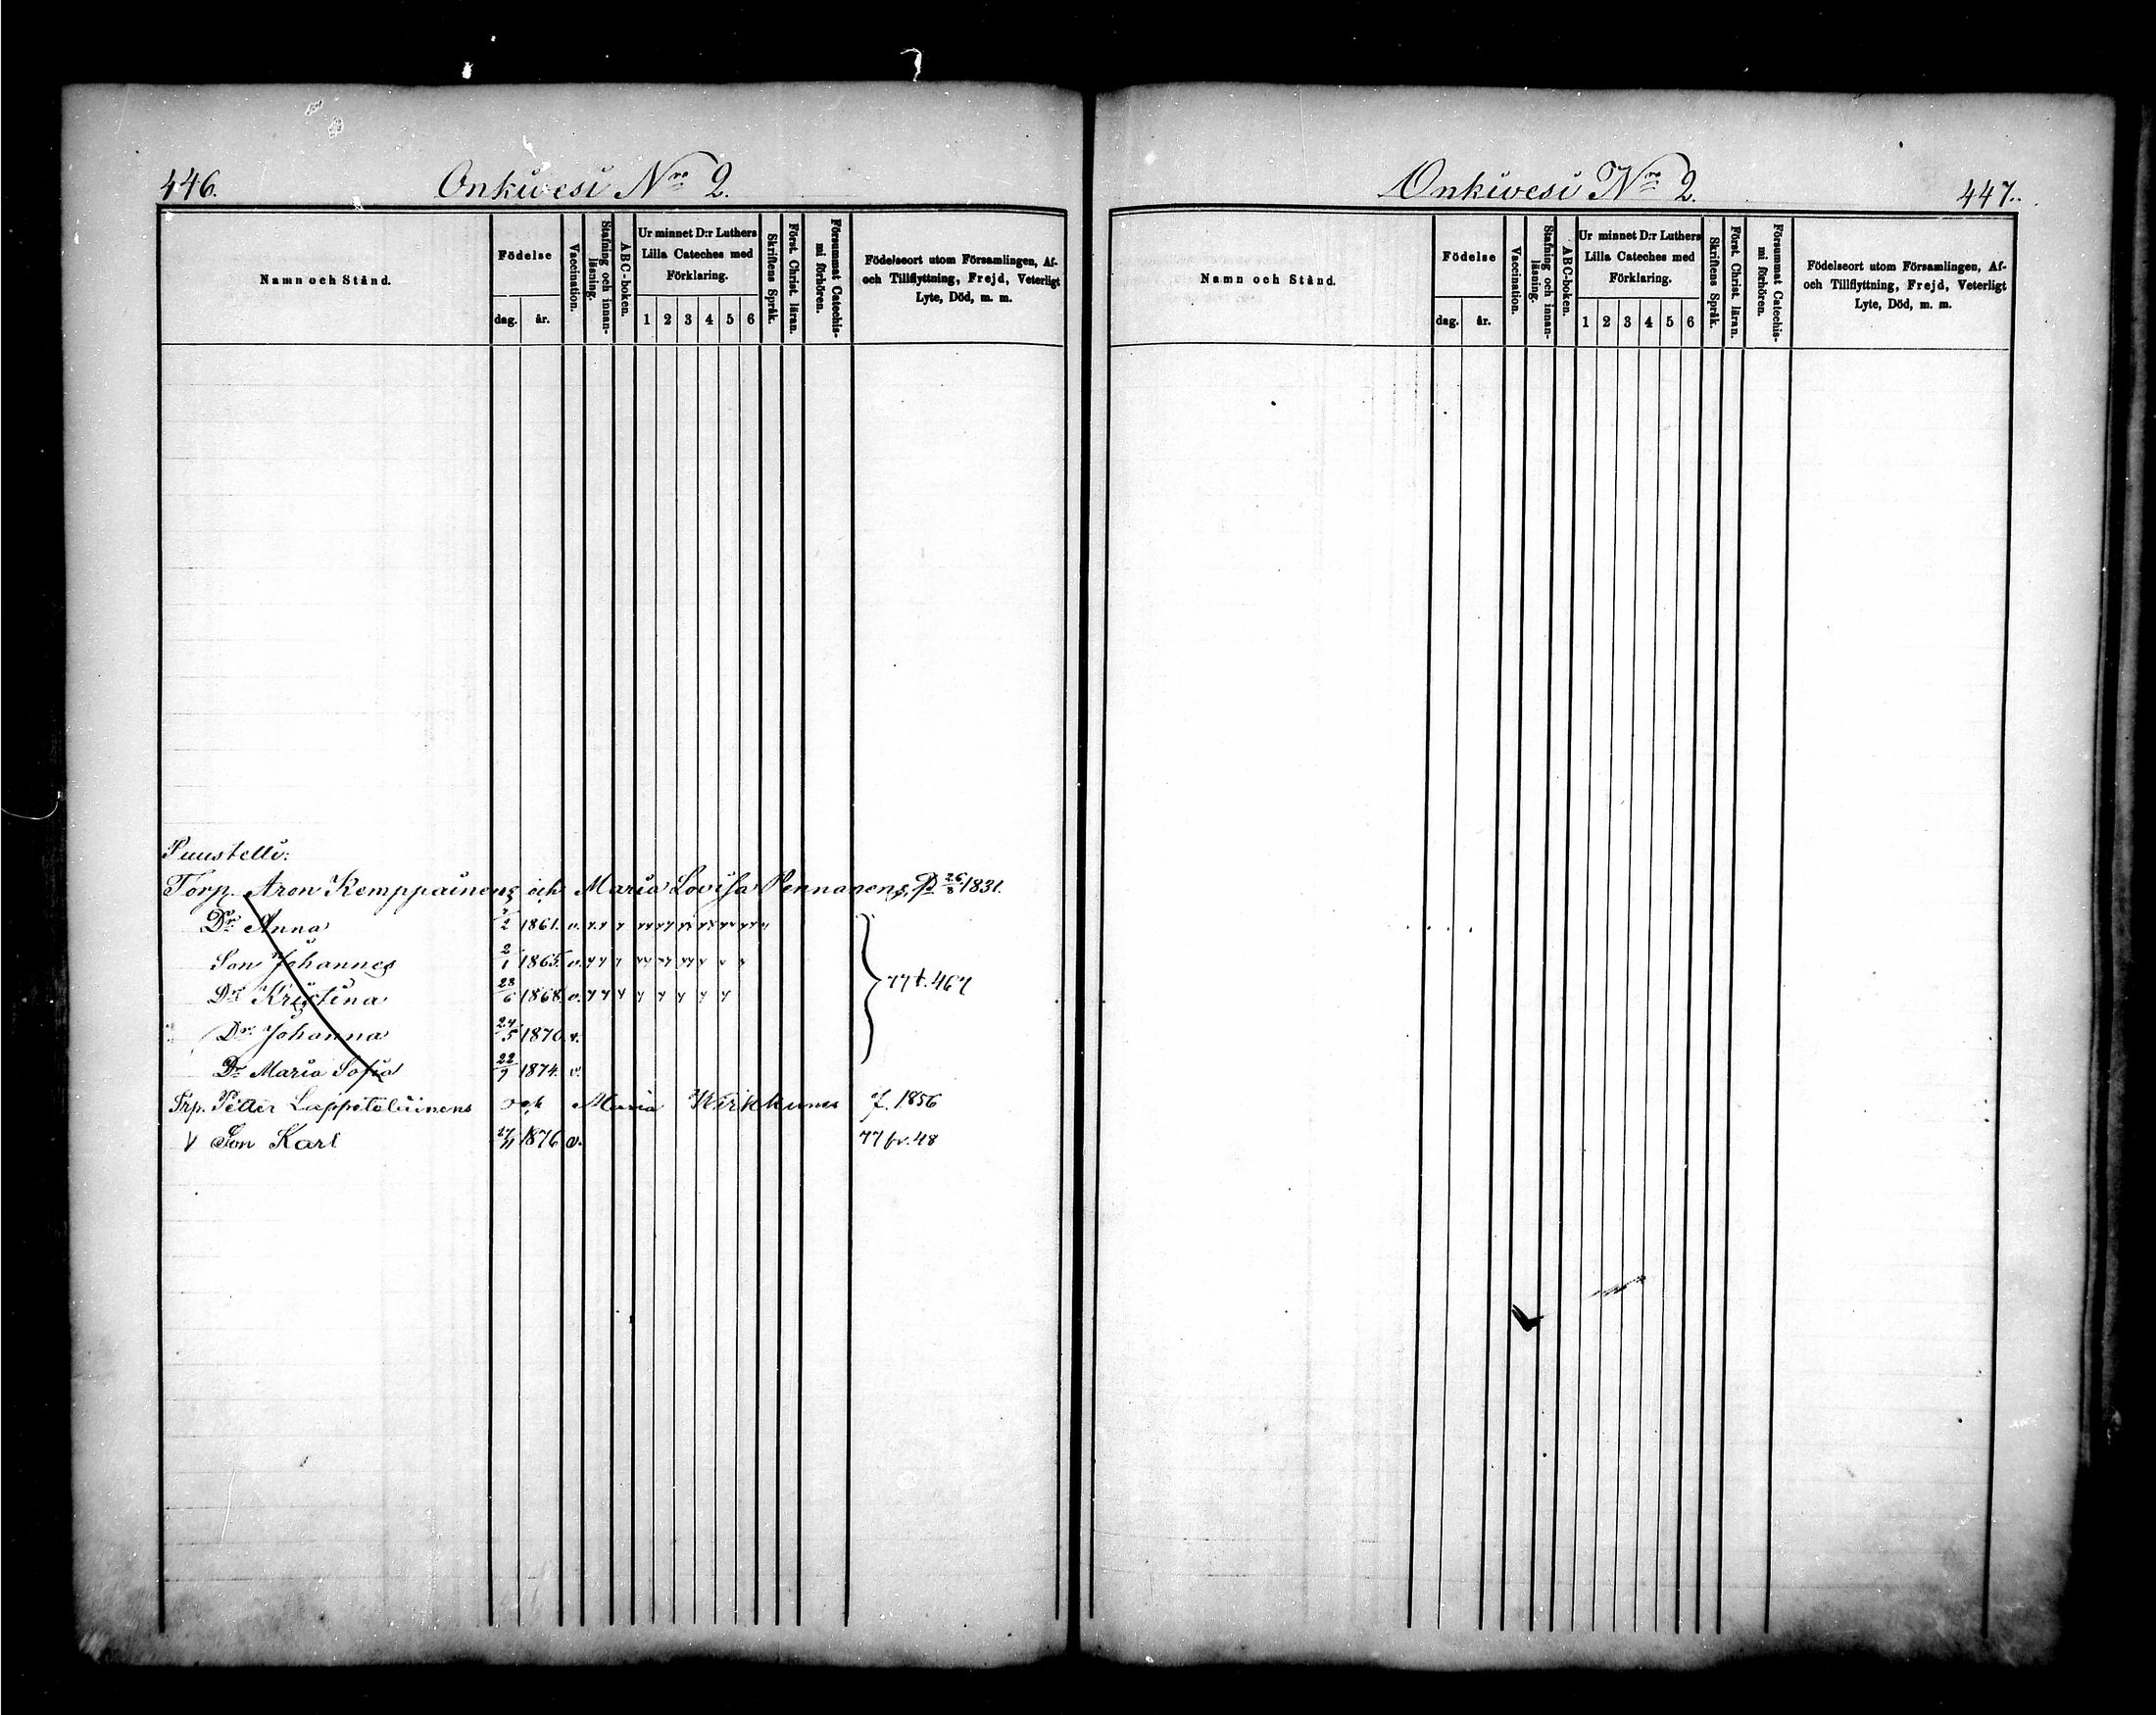 446.
Onkivesi Nro 2.
Namn och Stånd.
Födelse
dag. år.
Vaccination.
Stafning och innanläsning.
ABC-boken.
Ur minnet D:r Luthers Lilla Cateches med Förklaring.
1 2 3 4 5 6
Skriftens Språk.
Först. Christ. läran.
Försummat Catechismi förhören.
Födelseort utom Församlingen, Af- och Tillflyttning, Frejd, Veterligt Lyte, Död, m. m.
Puustelli:
Torp. Aron Kemppainens och Maria Lovisa Pennanens, D. 26/8 1831.
Dr Anna 2 1861. v.
Son Johannes 2/1 1865. v.
Dr Kristina 23/6 1868. v.
77 t. 467
Dr Johanna 24/5 1870. v.
Dr Maria Sofia 22/7 1874. v.
Trp. Petter Lappeteläinens och Maria Kirkkunes f. 1856
v Son Karl 27/11 1876 v. 77 fr. 48
Onkivesi Nro 2.
447.
Namn och Stånd.
Födelse
dag. år.
Vaccination.
Stafning och innanläsning.
ABC-boken.
Ur minnet D:r Luthers Lilla Cateches med Förklaring.
1 2 3 4 5 6
Skriftens Språk.
Först. Christ. läran.
Försummat Catechismi förhören.
Födelseort utom Församlingen, Af- och Tillflyttning, Frejd, Veterligt Lyte, Död, m. m.